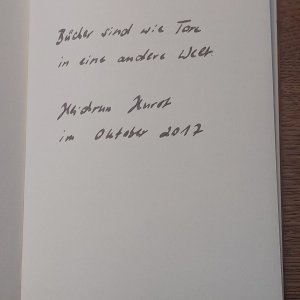 Bücher sind wie Tore
in eine andere Welt.
Heidrun Hurst
im Oktober 2017